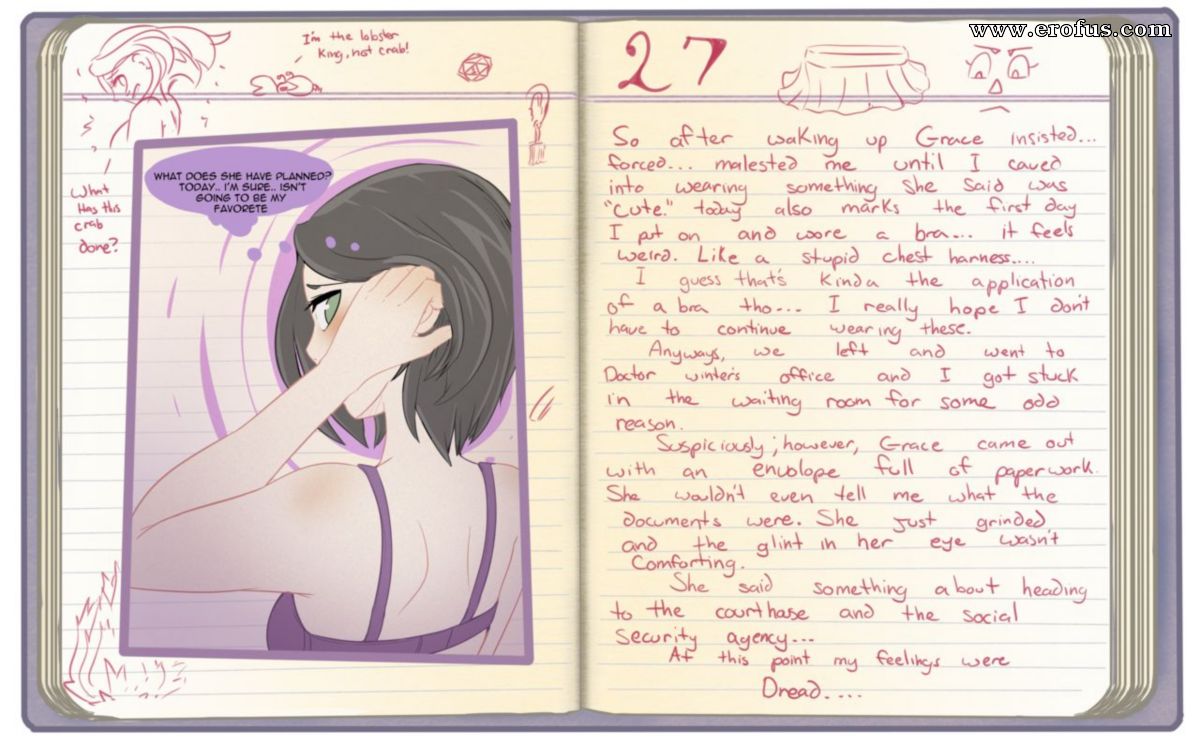 www.erofus.com
I'm the lobster
King, not crab!
What
Has this
crab
done?
WHAT DOES SHE HAVE PLANNED?
TODAY.. I'M SURE.. ISN'T
GOING TO BE MY
FAVORETE
27
So after waking up Grace insisted...
forced... malested me until I caved
into wearing something she said was
"cute." today also marks the first day
I put on and wore a bra... it feels
weird. Like a stupid chest harness....
I guess that's Kinda the application
of a bra tho... I really hope I don't
have to continue wearing these.
Anyways, we left and went to
Doctor winter's office and I got stuck
in the waiting room for some odd
reason.
Suspiciously; however, Grace came out
with an envolope full of paperwork.
She wouldn't even tell me what the
documents were. She just grinded
and the glint in her eye wasn't
Comforting.
She said something about heading
to the courthase and the social
Security agency...
At this point my feelings were
Dread....